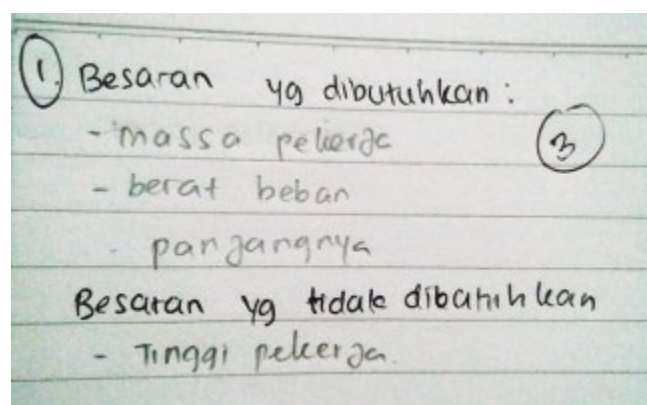 1. Besaran yg dibutuhkan :
- massa pekerja
3
- berat beban
- panjangnya
Besaran yg tidak dibutuhkan
- Tinggi pekerja.